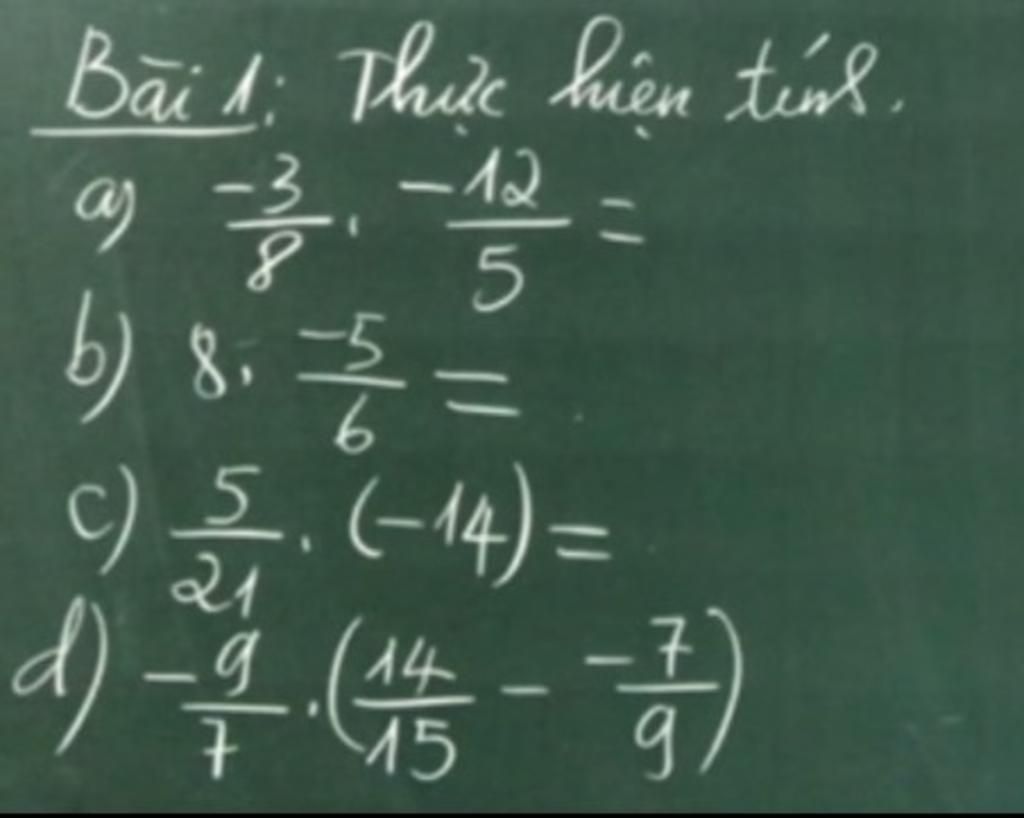 Bài 1: Thực hiện tính.
a) -3/8 . -12/5 =
b) 8 . -5/6 =
c) 5/21 . (-14) =
d) -9/7 . (14/15 - -7/9)